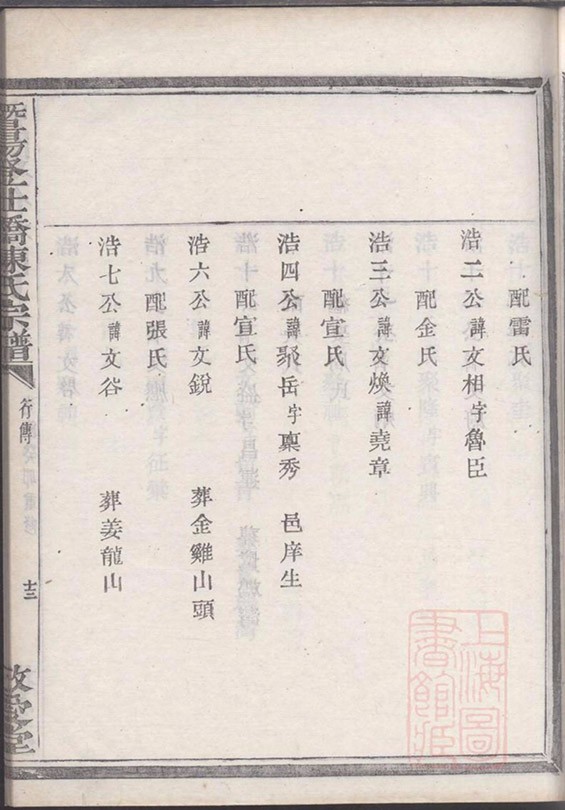 配雷氏
浩二公諱文相字魯臣
配金氏
浩三公諱文煥諱堯章
配宣氏
浩四公諱聚岳字稟秀 邑庠生
配宣氏
浩六公諱文銳 葬金雞山頭
配張氏
浩七公諱文谷 葬姜龍山
暨陽 仕橋陳氏宗譜 行傳 十三 敬 堂
上海圖書館藏